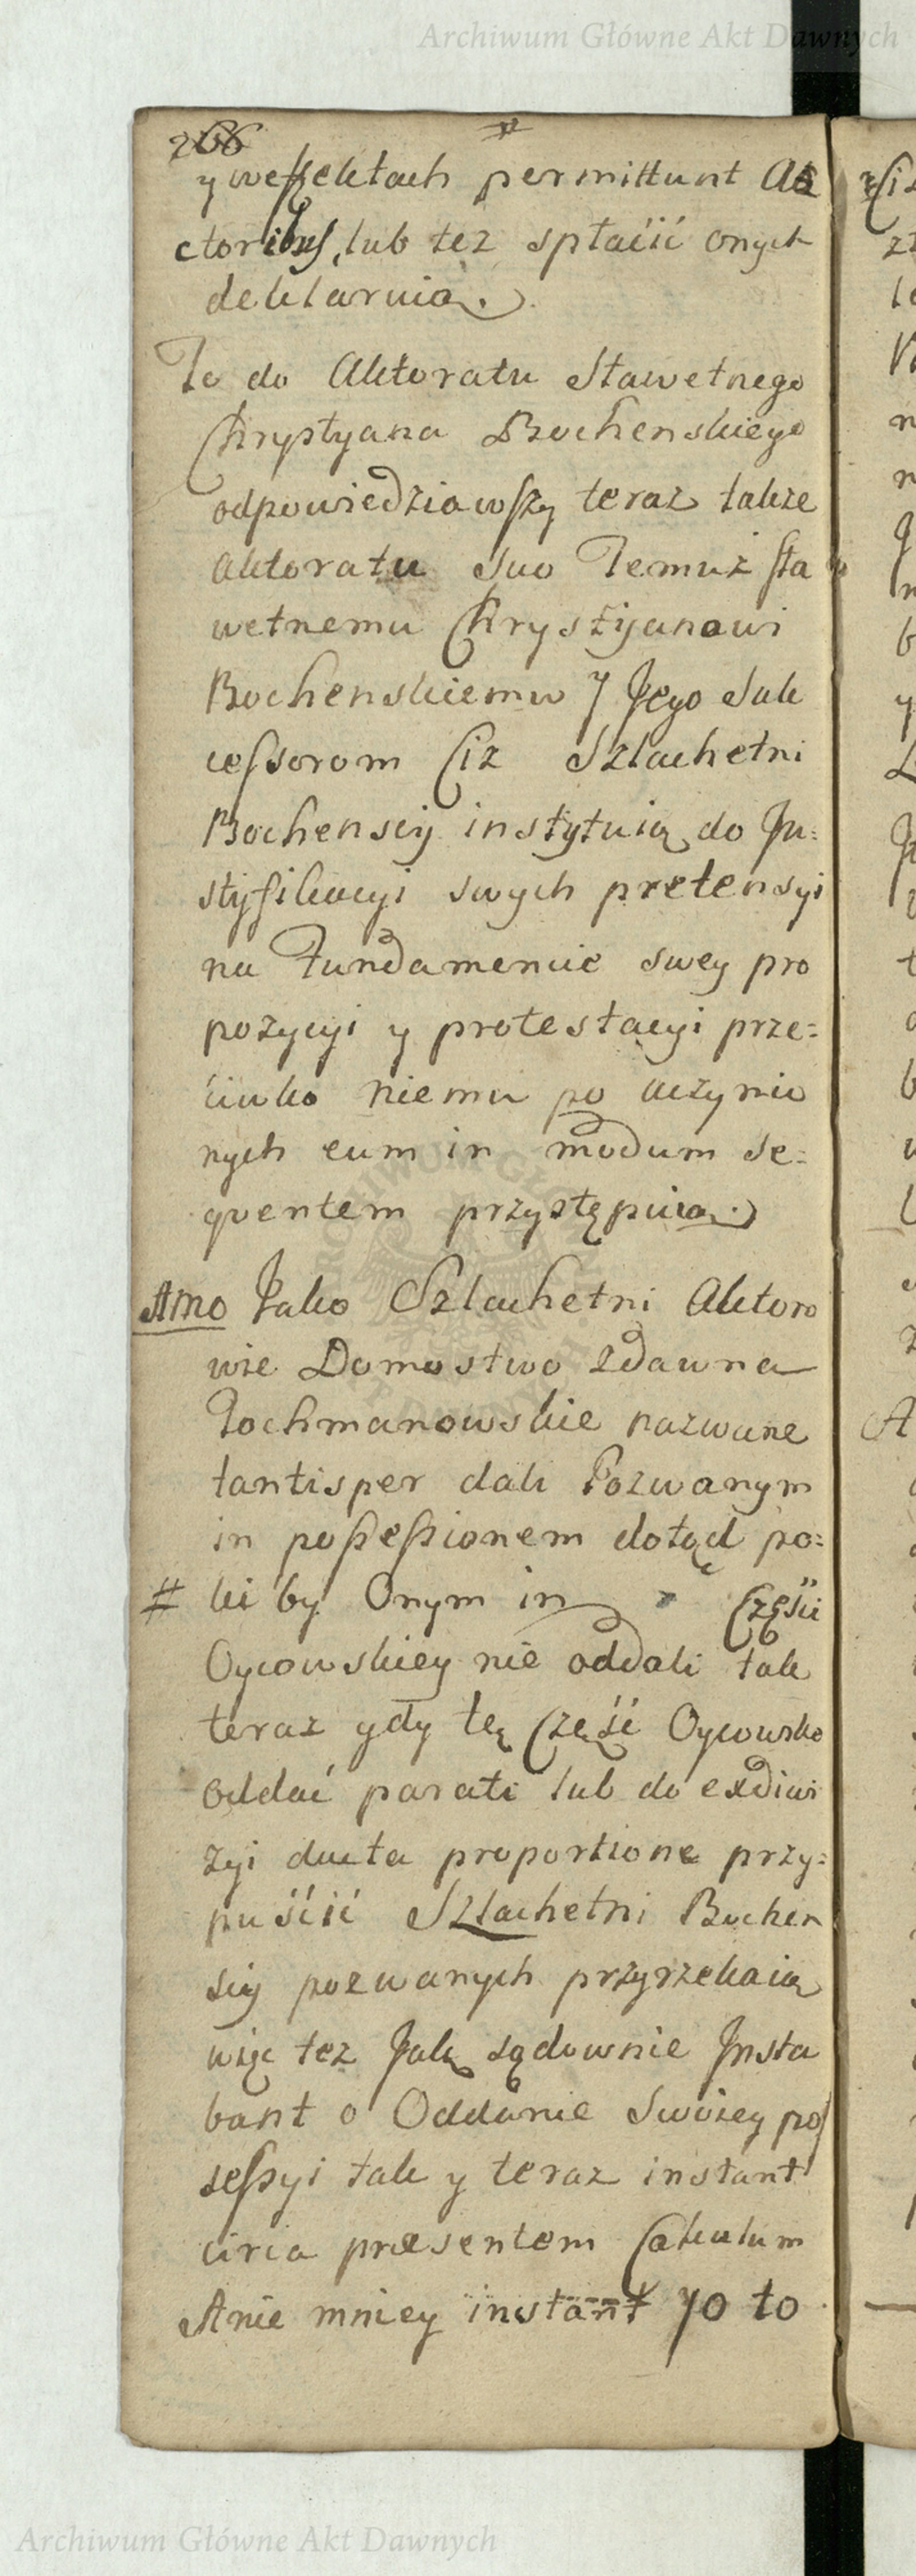 Archiwum Główne Akt Dawnych
266 #
y weffektach permittunt A
ctoribus, lub tez spłaćić onych
deklaruią.
To do Aktoratu Sławetnego
Chrystyana Bochenskiego
odpowiedziawszy teraz także
Aktoratu suo Temuż Sła
wetnemu Chrystyanowi
Bochenskiemu y Jego Suk
cessorom Ciz Szlachetni
Bochenscy instytuią do Ju=
styfikacyi swych pretensyi
na Fundamencie swey pro
pozycyi y protestacyi prze=
ćiwko niemu po uczynio
nych eum in modum se=
quentem przystępuią.
Amo Jako Szlachetni Aktoro
wie Domostwo zdawna
Tochmanowskie nazwane
tantisper dali Pozwanym
in possessionem dotąd po=
# ki by Onym in Częśći
Oycowskiey nie oddali tak
teraz gdy tę Część Oycowską
oddać parati lub do exdiwi
zyi ducta proportione przy=
puśćić Szlachetni Bochen
scy pozwanych przyrzekaią
więc tez Jak sądownie Insta
bant o Oddanie Swoiey pos
sessyi tak y teraz instant
circa præsentem Calculum
A nie mniey instant yo to
Archiwum Główne Akt Dawnych